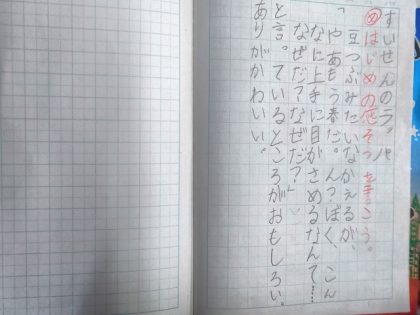 すいせんのラッパ
めはじめの感そうを書こう。
豆つぶみたいなかえるが、
「やあもう春だ。ぼく、こん
なに上手に目がさめるなんて……
なぜだ？なぜだ？」
と言っているところがおもしろい。
ありがかわいい。